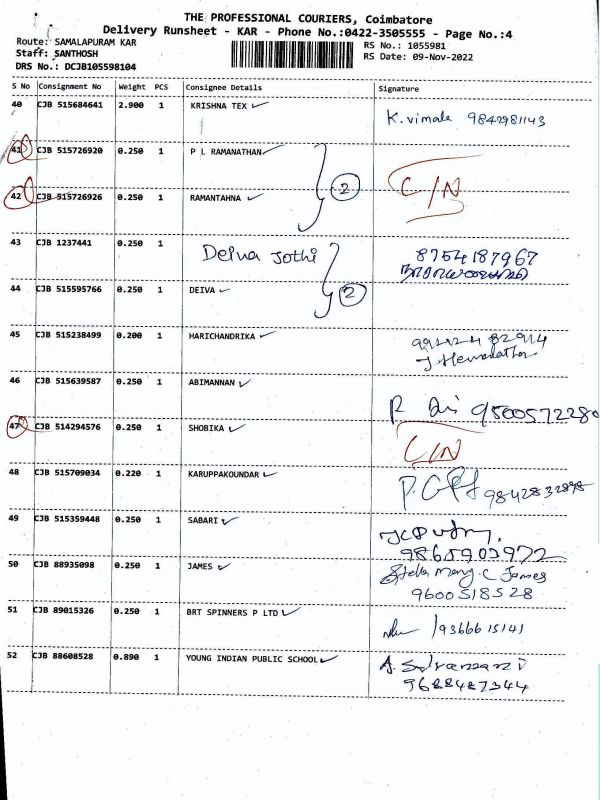 THE PROFESSIONAL COURIERS, Coimbatore
Delivery Runsheet - KAR - Phone No.:0422-3505555 - Page No.:4
Route: SAMALAPURAM KAR
RS No.: 1055981
Staff: SANTHOSH
RS Date: 09-Nov-2022
DRS No.: DCJB105598104
S No Consignment No Weight PCS Consignee Details Signature
40 CJB 515684641 2.900 1 KRISHNA TEX ✓ K. vimala 9842981143
41 CJB 515726920 0.250 1 P L RAMANATHAN ✓
42 CJB 515726926 0.250 1 RAMANTAHNA ✓ 2 C/N
43 CJB 1237441 0.250 1 Deiva Jothi 8754187967
44 CJB 515595766 0.250 1 DEIVA ✓ 2
45 CJB 515238499 0.200 1 HARICHANDRIKA ✓
46 CJB 515639587 0.250 1 ABIMANNAN ✓ 9500572280
47 CJB 514294576 0.250 1 SHOBIKA ✓ C/N
48 CJB 515709034 0.220 1 KARUPPAKOUNDAR ✓
49 CJB 515359448 0.250 1 SABARI ✓
9865903972
50 CJB 88935098 0.250 1 JAMES ✓ Stella Mary. C James
9600518528
51 CJB 89015326 0.250 1 BRT SPINNERS P LTD ✓ /9366615141
52 CJB 88608528 0.890 1 YOUNG INDIAN PUBLIC SCHOOL ✓
9688487344